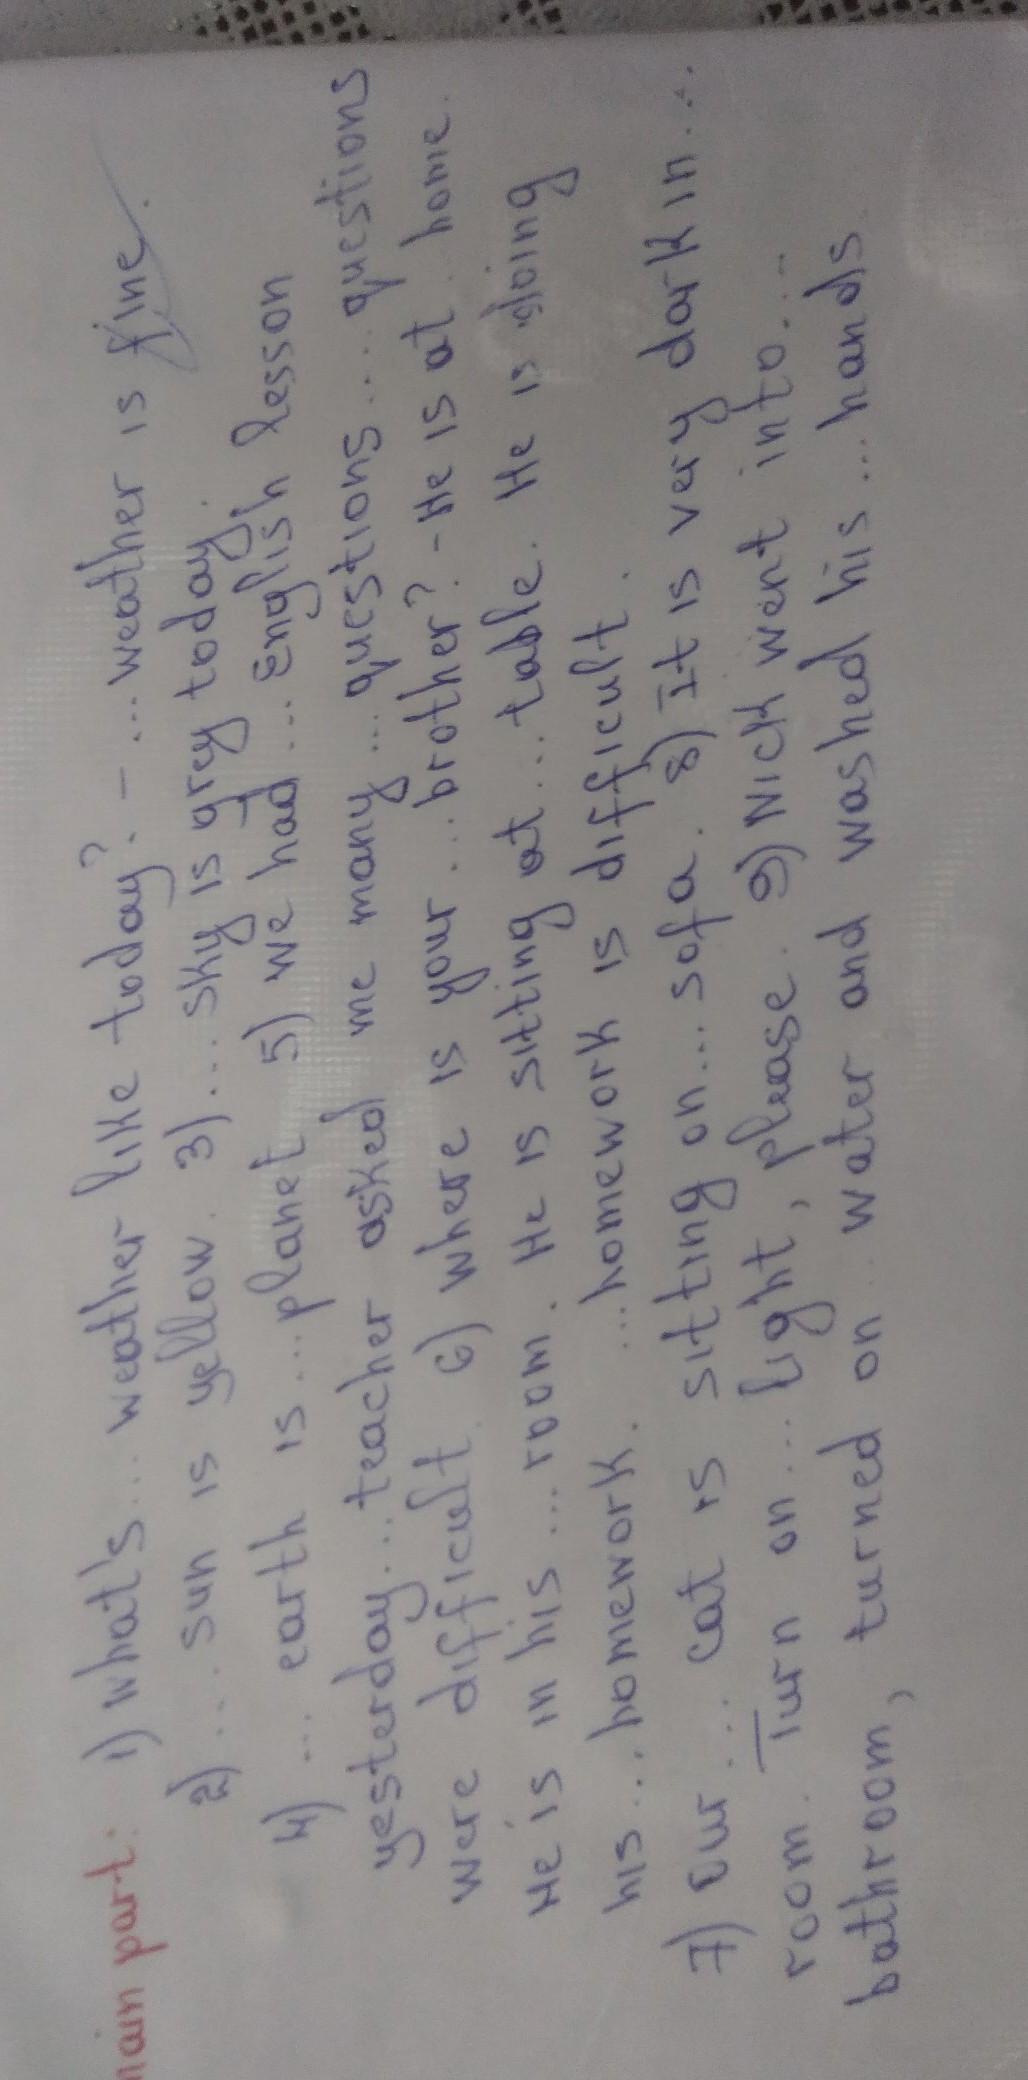 main part: 1) What's... weather like today? - ... weather is fine.
2) ... sun is yellow. 3) ... sky is grey today.
4) ... earth is ... planet 5) we had ... English lesson
yesterday... teacher asked me many ... questions ... questions
were difficult. 6) where is your ... brother? - He is at . home.
He is in his ... room. He is sitting at ... table. He is doing
his... homework. ... homework is difficult.
7) Our ... cat is sitting on... sofa. 8) It is very dark in ...
room. Turn on ... light, please. 9) Nick went into ...
bathroom, turned on .. water and washed his ... hands